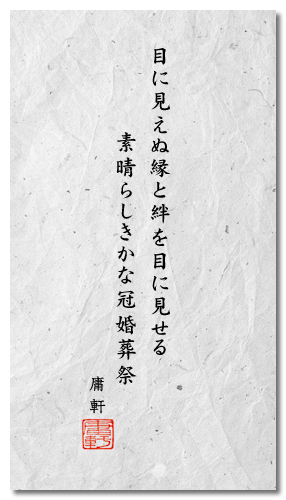 目に見えぬ縁と絆を目に見せる
素晴らしきかな冠婚葬祭
庸軒